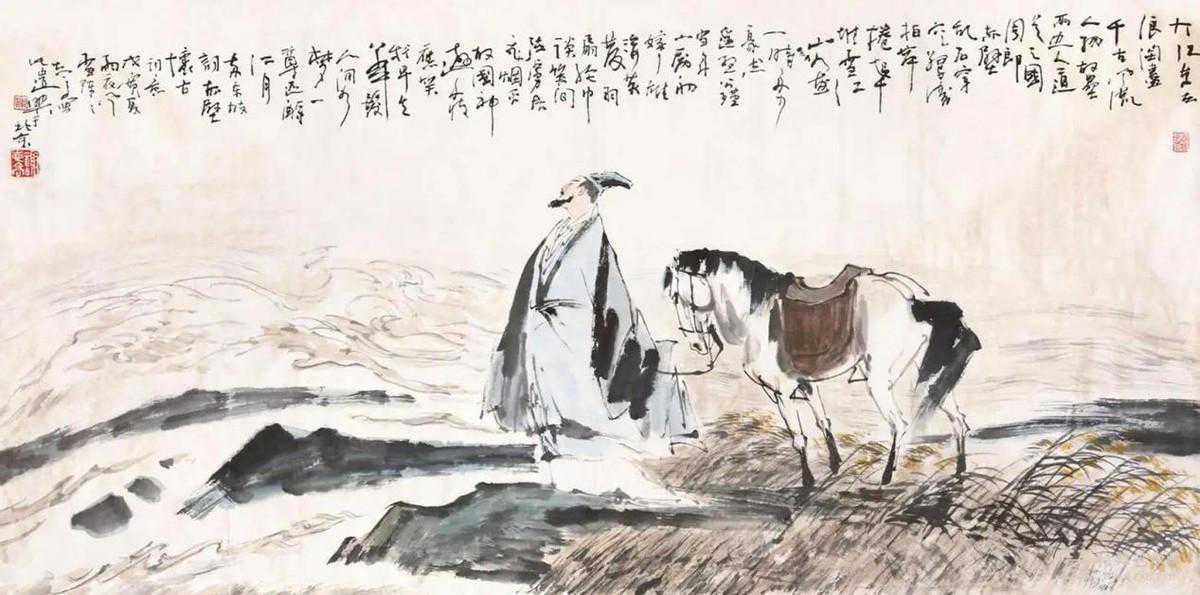 大江东去
浪淘尽
千古风流
人物故垒
西边人道
是三国
周郎
赤壁
乱石穿
空惊涛
拍岸
捲起千
堆雪江
山如画
一时多少
豪杰
遥想公瑾
当年
小乔初
嫁了雄
姿英
发羽
扇纶巾
谈笑间
强虏灰
飞烟灭
故国神
遊多情
应笑
我早生
华发
人间如
梦一
尊还酹
江月
东坡
词赤壁
怀古
词意
戊寅夏
雨夜
此遣兴于北京